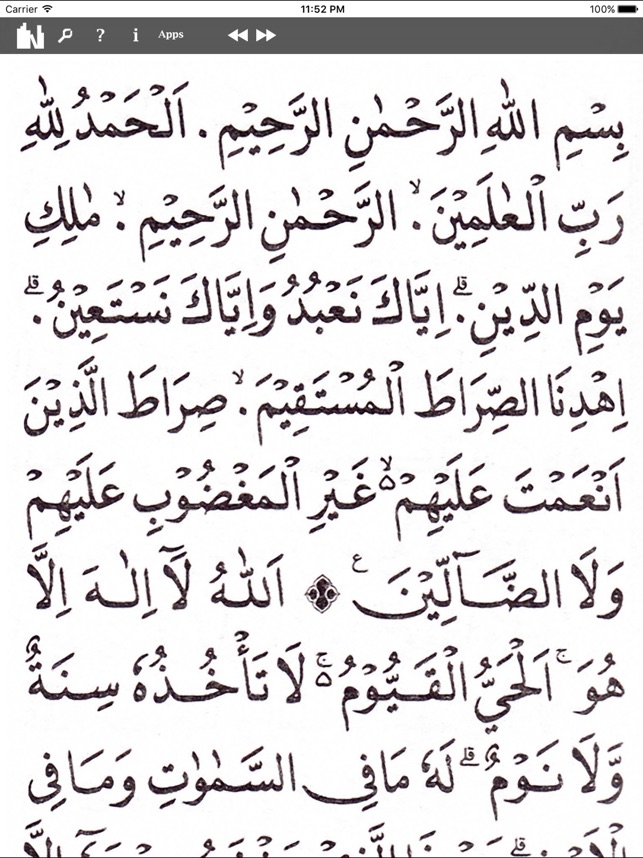 Carrier 11:52 PM 100%
? i Apps
بِسْمِ اللّٰهِ الرَّحْمٰنِ الرَّحِيْمِ . اَلْحَمْدُ لِلّٰهِ
رَبِّ الْعٰلَمِيْنَ ۙ. الرَّحْمٰنِ الرَّحِيْمِ ۙ. مٰلِكِ
يَوْمِ الدِّيْنِ ۗ. اِيَّاكَ نَعْبُدُ وَاِيَّاكَ نَسْتَعِيْنُ ۗ.
اِهْدِنَا الصِّرَاطَ الْمُسْتَقِيْمَ ۙ. صِرَاطَ الَّذِيْنَ
اَنْعَمْتَ عَلَيْهِمْ ۙ۵ غَيْرِ الْمَغْضُوْبِ عَلَيْهِمْ
وَلَا الضَّآلِّيْنَ ع اَللّٰهُ لَآ اِلٰهَ اِلَّا
هُوَ ۚ اَلْحَيُّ الْقَيُّوْمُ ۚ۵ لَا تَأْخُذُهٗ سِنَةٌ
وَّلَا نَوْمٌ ۗ لَهٗ مَا فِي السَّمٰوٰتِ وَمَا فِي